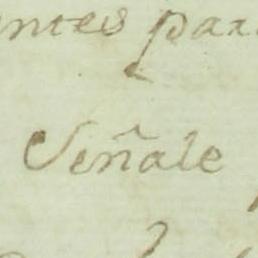 ntes para
Señale